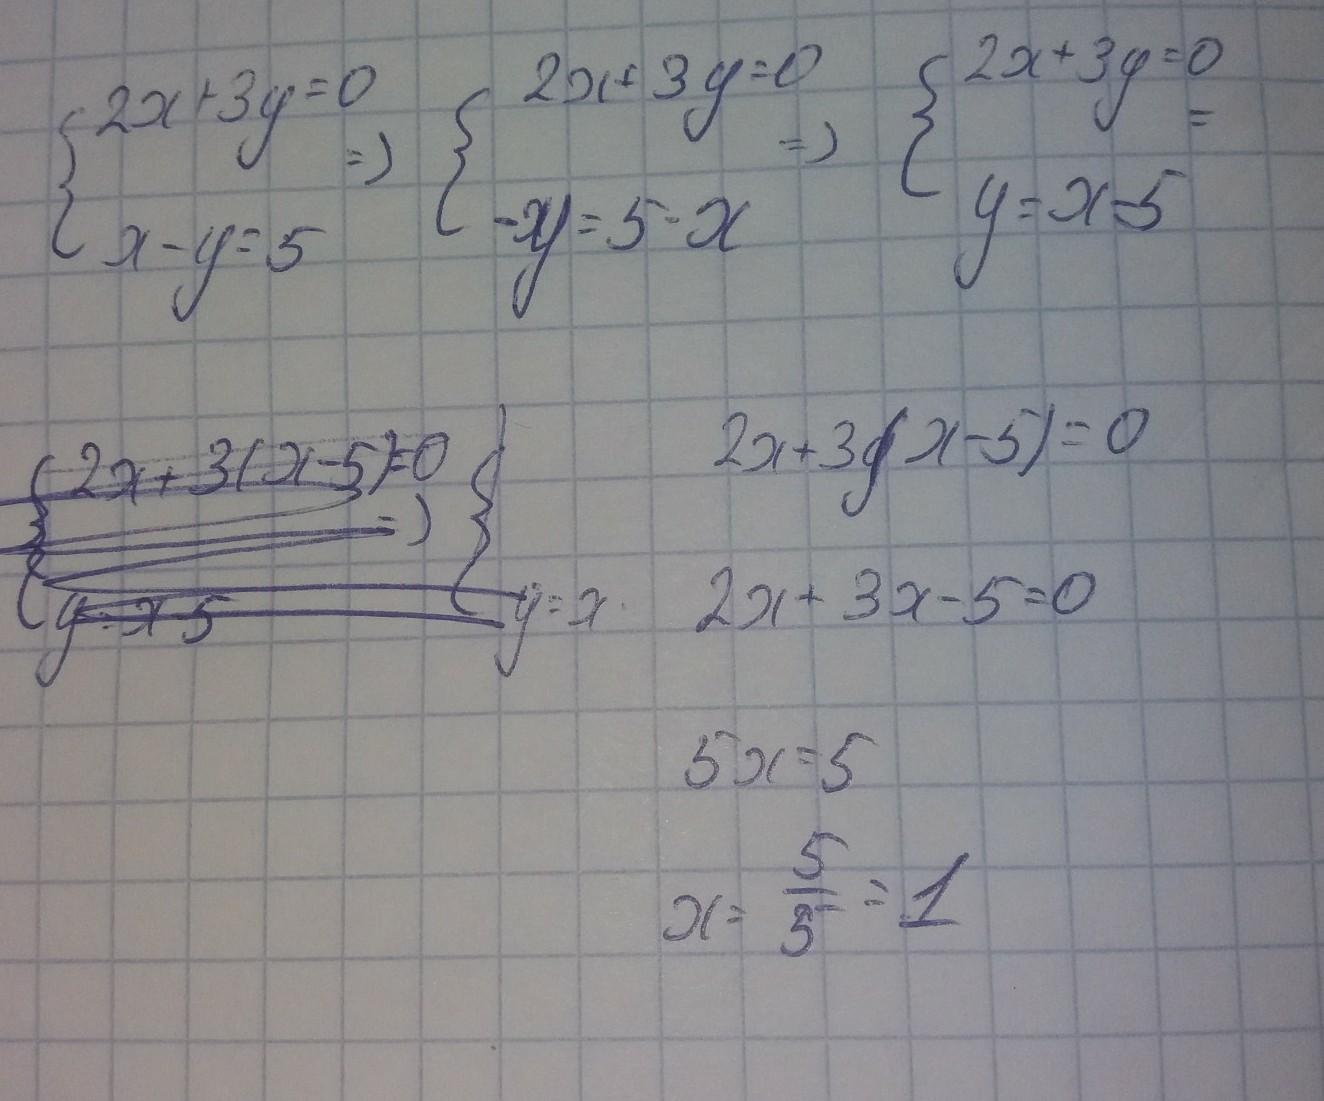 {2x+3y=0 => {2x+3y=0 => {2x+3y=0 =
x-y=5 -y=5-x y=x-5
{2x+3(x-5)=0 => {
y=x-5 y=x
2x+3(x-5)=0
2x+3x-5=0
5x=5
x=5/5=1